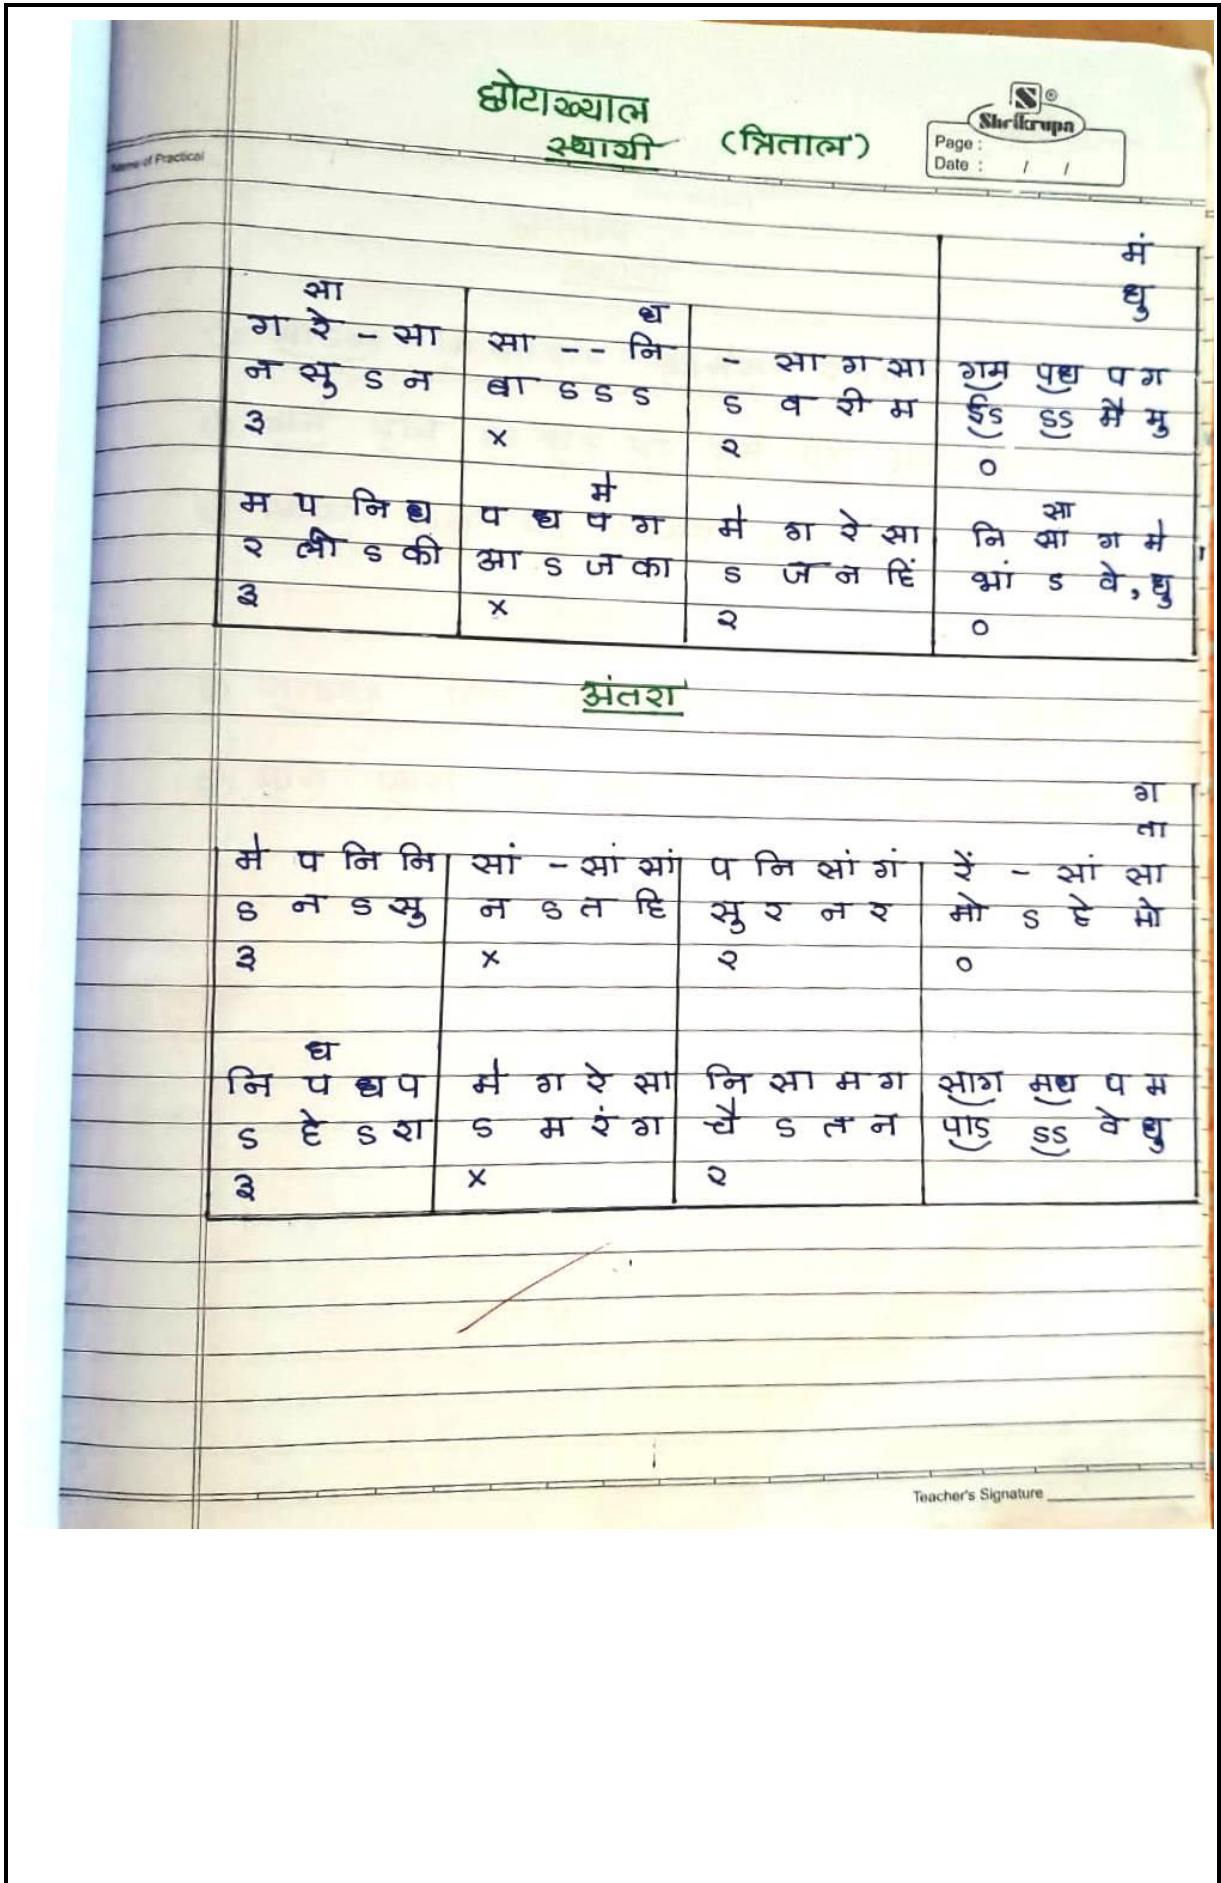 छोटाख्याल
स्थायी (त्रिताल)
S®
Shrikrupa
Page :
Date : / /
Name of Practical
मं
धु
सा ध
ग रे - सा सा - - नि - सा ग सा गम पध प ग
न सु ऽ न बा ऽ ऽ ऽ ऽ व री म ईऽ ऽऽ मै मु
३ × २ ०
मे सा
म प नि ध प ध प ग मे ग रे सा नि सा ग मे
र ली ऽ की आ ऽ ज का ऽ ज न हिं भां ऽ वे, धु
३ × २ ०
अंतरा
ग
ता
मे प नि नि सां - सां सां प नि सां गं रें - सां सा
ऽ न ऽ सु न ऽ त हि सु र न र मो ऽ हे मो
३ × २ ०
ध
नि प ध प मे ग रे सा नि सा म ग साग मध प म
ऽ हे ऽ श ऽ म रं ग चै ऽ त न पाऽ ऽऽ वे धु
३ × २
Teacher's Signature